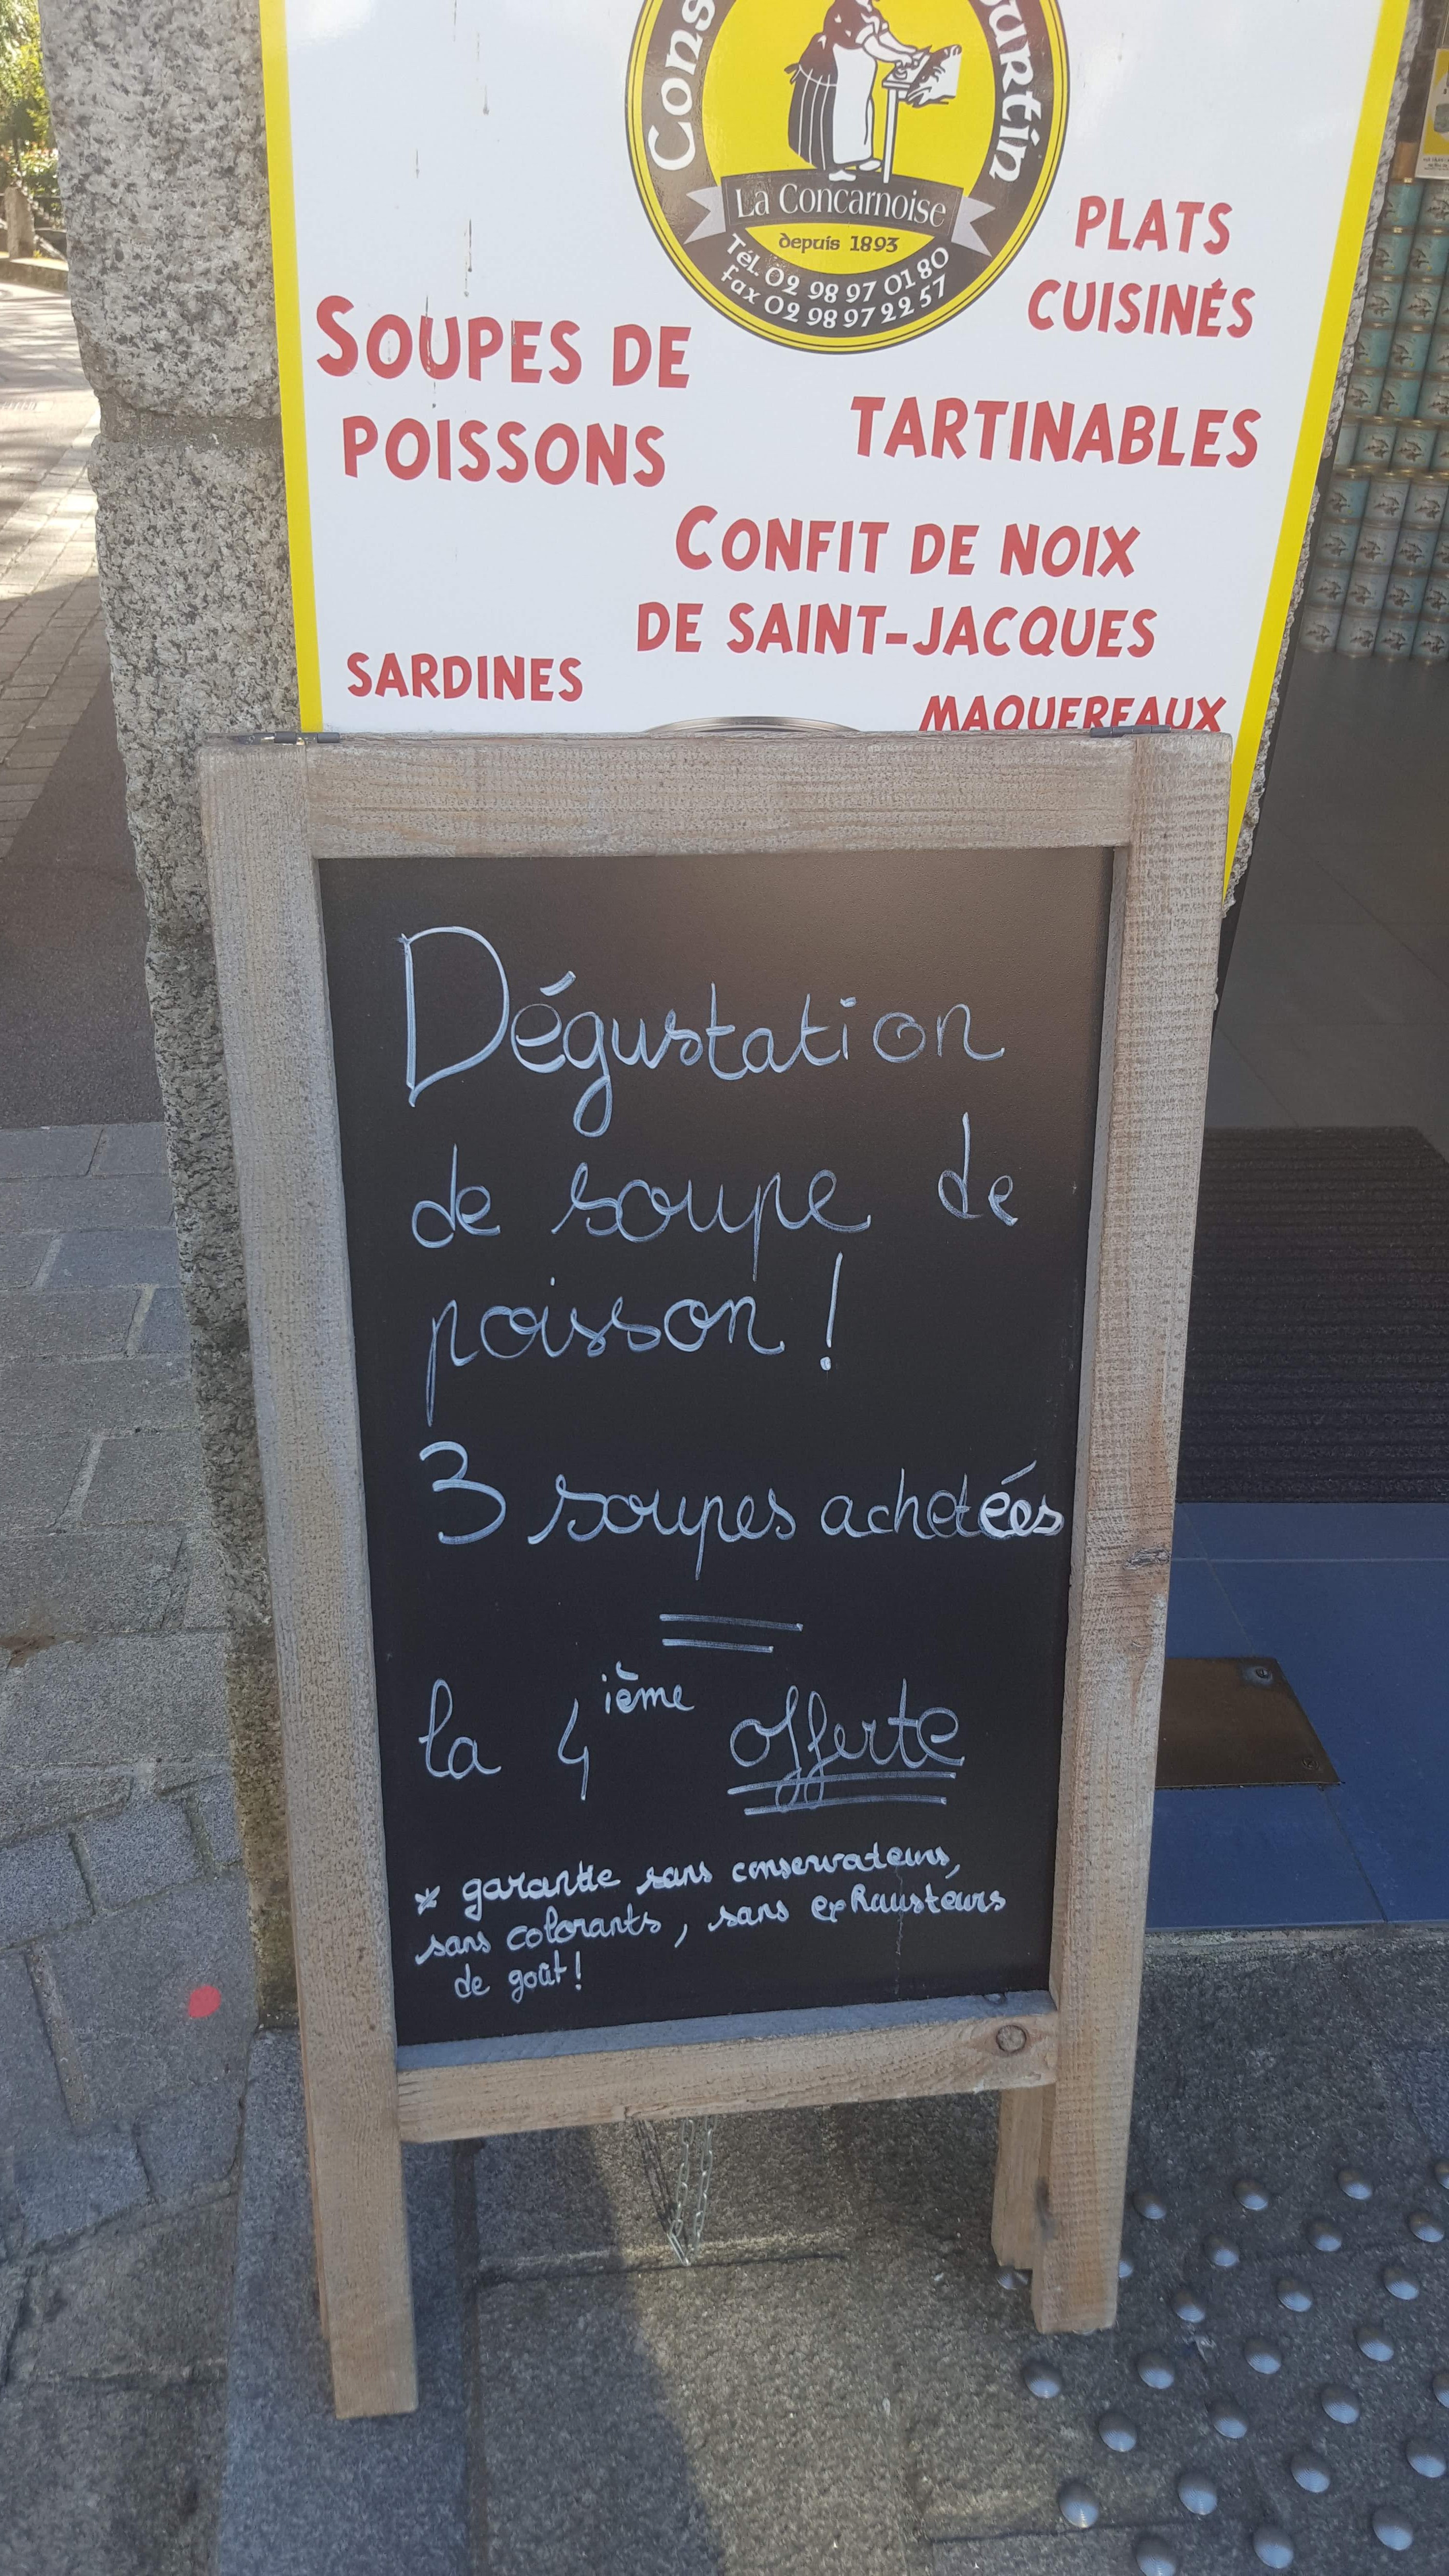 Cons
ourtin
La Concarnoise
depuis 1893
Tél. 02 98 97 01 80
Fax 02 98 97 22 57
PLATS
CUISINÉS
SOUPES DE
POISSONS
TARTINABLES
CONFIT DE NOIX
DE SAINT-JACQUES
SARDINES
MAQUEREAUX
Dégustation
de soupe de
poisson !
3 soupes achetées
=
la 4ième offerte
* garantie sans conservateurs,
sans colorants, sans exhausteurs
de goût !